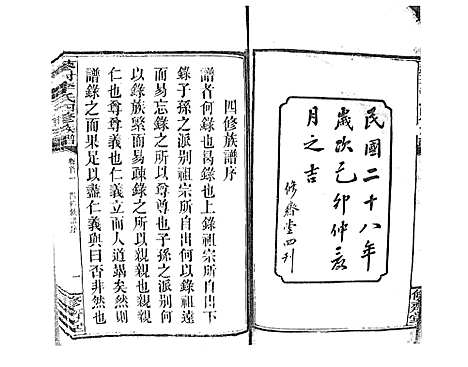 民國二十八年
歲次己卯仲夏
月之吉
修齋堂四刊
四修族譜序
譜者何錄也曷錄也上錄祖宗所自出下
錄子孫之派別祖宗所自出何以錄祖遠
而易疎錄之所以尊尊也子孫之派別何
以錄族繁而易疎錄之所以親親也親親
仁也尊尊義也仁義立而人道竭矣然則
譜錄之而果足以盡仁義與曰否非然也